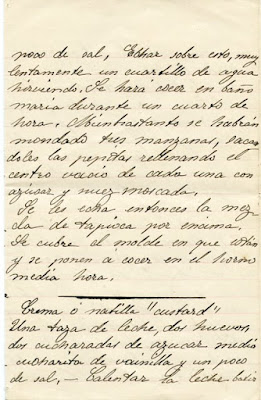 poco de sal, Echar sobre esto, muy
lentamente un cuartillo de agua
hirviendo. Se hará cocer en baño
maria durante un cuarto de
hora. Mientrastanto se habrán
mondado tres manzanas, sacan
doles las pepitas rellenando el
centro vacio de cada una con
azúcar y nuez moscada.
Se les echa entonces la mez
cla de tapioca por encima.
Se cubre el molde en que están
y se ponen a cocer en el horno
media hora.
Crema ó natilla "custard"
Una taza de leche, dos huevos,
dos cucharadas de azucar media
cucharita de vainilla y un poco
de sal, — Calentar la leche batir